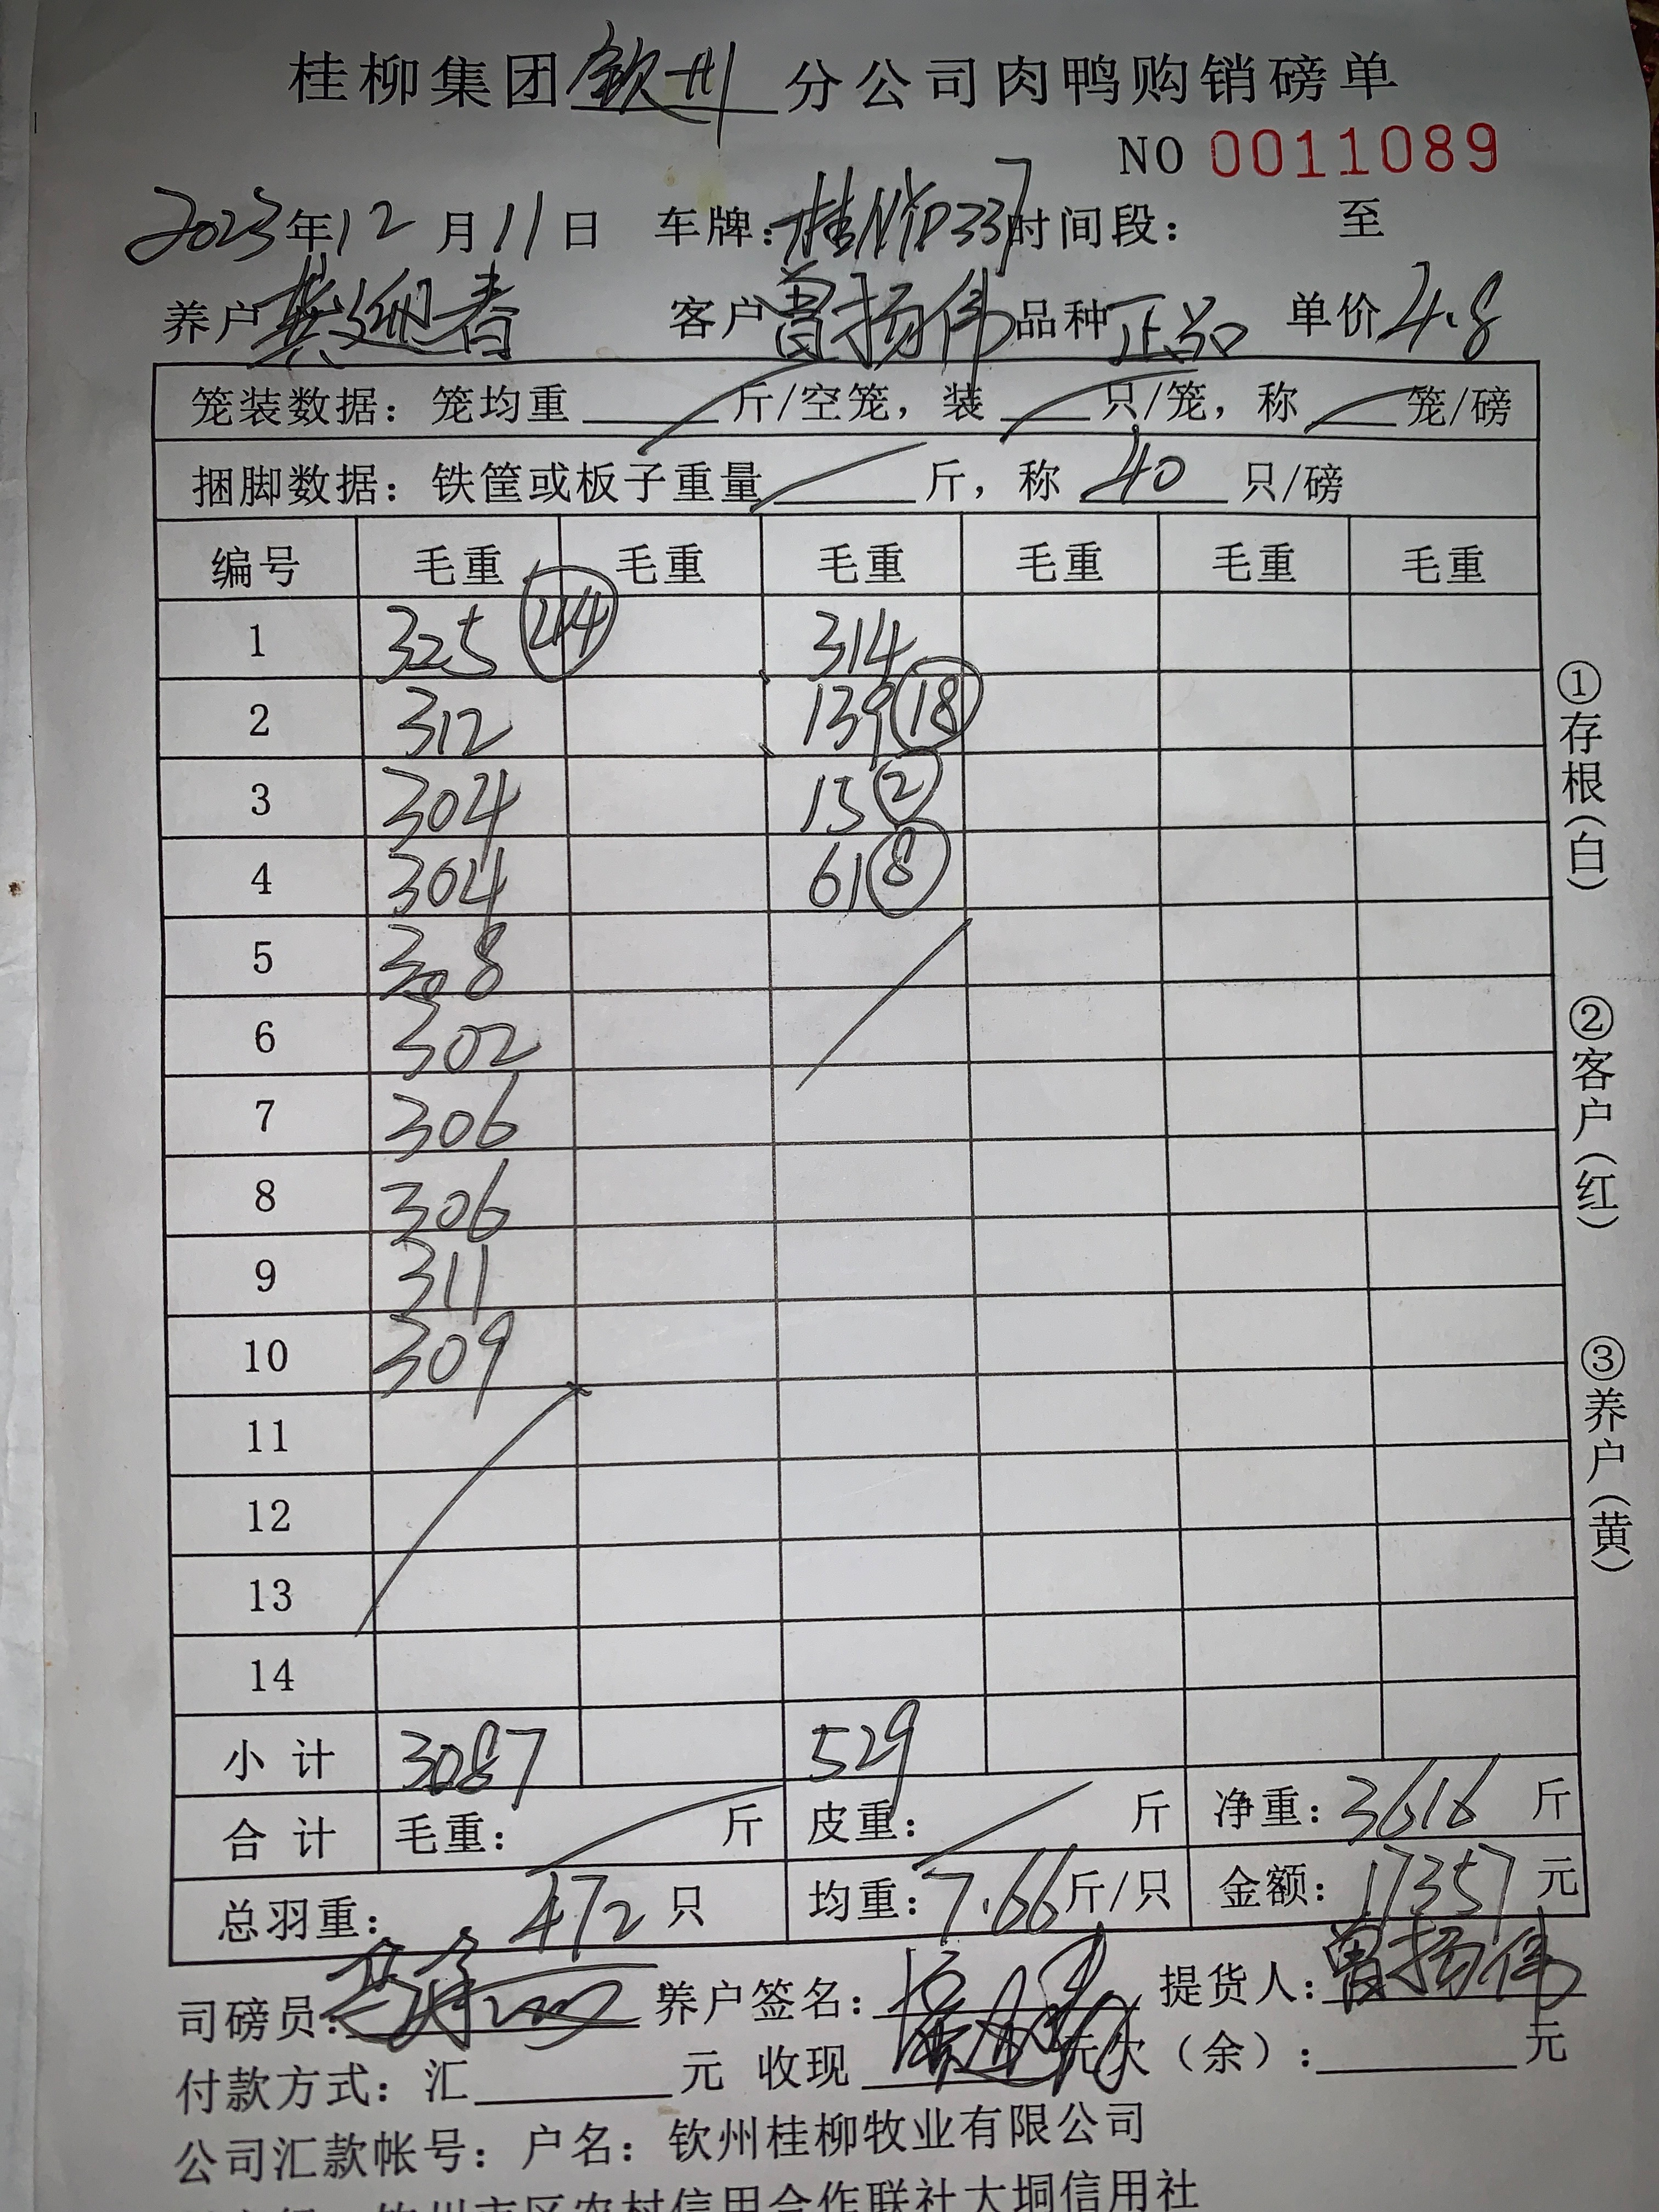 桂柳集团钦州分公司肉鸭购销磅单
NO 0011089
2023年12月11日 车牌:桂N 时间段: 至
养户 龚迎春 客户 曾扬伟 品种 正品 单价 4.8
笼装数据: 笼均重 斤/空笼, 装 只/笼, 称 笼/磅
捆脚数据: 铁筐或板子重量 斤, 称 40 只/磅
编号 毛重 毛重 毛重 毛重 毛重 毛重
1 325 (44) 314
2 312 139 (18)
3 304 15 (2)
4 304 61 (8)
5 308
6 302
7 306
8 306
9 311
10 309
11
12
13
14
小计 3087 529
合计 毛重: 斤 皮重: 斤 净重: 3616 斤
总羽重: 472 只 均重: 7.66 斤/只 金额: 17357 元
司磅员: 养户签名: 提货人: 曾扬伟
付款方式: 汇 元 收现 元欠(余): 元
公司汇款帐号: 户名: 钦州桂柳牧业有限公司
钦州市区农村信用合作联社大垌信用社
①存根(白)
②客户(红)
③养户(黄)